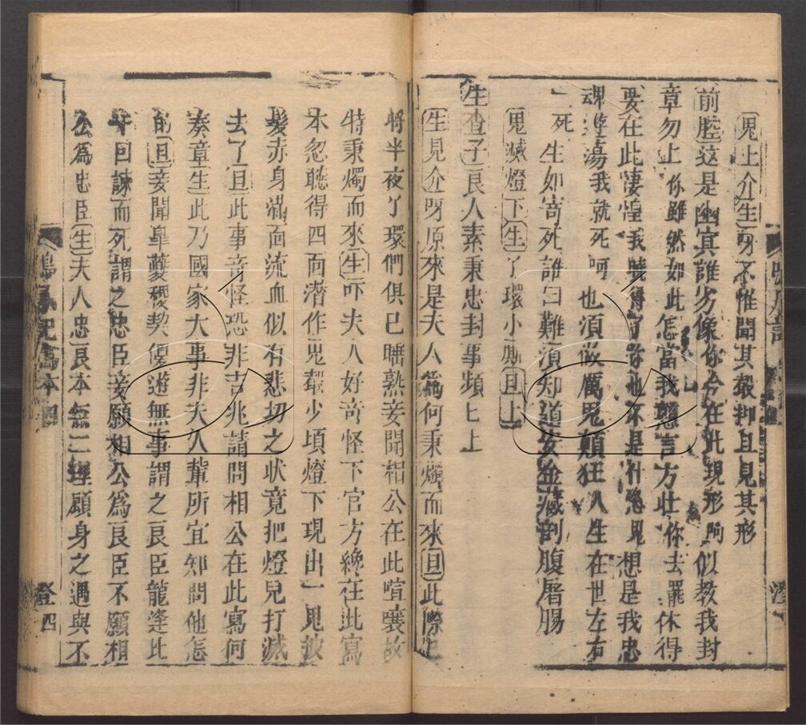 鬼上介生呀不惟聞其聲抑且見其形
前腔這是幽冥誰旁像你今在此現形呵似教我封
章勿上你雖然如此怎當我戇言方壮你去罷休得
要在此悽惶我曉得了你也不是什怎鬼想是我忠
魂遊蕩我就死呵也須做厲鬼顛狂人生在世左右
一死生如寄死誰曰難須知道安金藏剖腹屠腸
鬼滅燈下生了環小厮旦上
生查子良人素秉忠封事頻匕上
生見介呀原來是夫人為何秉燭而來旦此際已
將半夜了環們俱已睡熟妾聞相公在此喧嚷故
特秉燭而來生吓夫人好奇怪下官方纔在此寫
本忽聽得四面潛作鬼聲少頃燈下現出一鬼披
髪赤身滿面流血似有悲切之狀竟把燈兒打滅
去了旦此事竒怪恐非吉兆請問相公在此寫何
奏章生此乃國家大事非夫人輩所宜知問他怎
的旦妾聞臯䕫稷契優遊無事謂之良臣龍逢比
干因諫而死謂之忠臣妾願相公為良臣不願相
公為忠臣生夫人忠良本無二理顧身之遇與不
鳴鳳記寫本
四